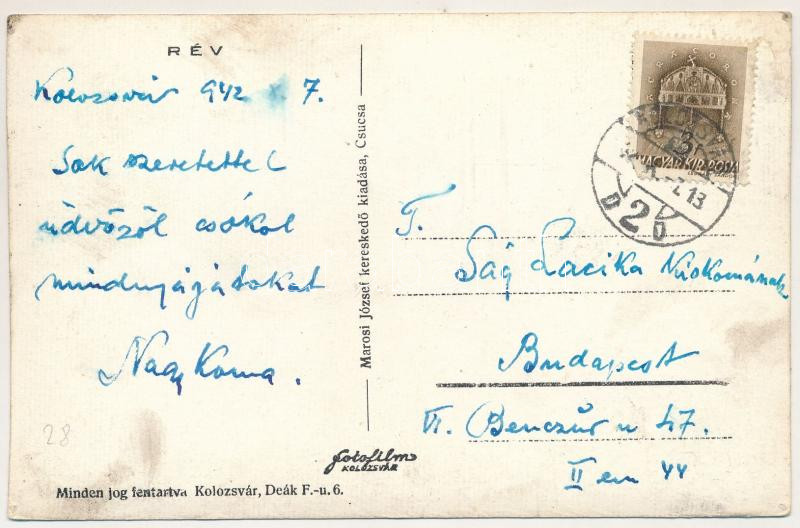 RÉV
Kolozsvár 942 X 7.
Sok szeretettel
üdvözöl csókol
mindnyájatokat
Nagy Koma.
28
Minden jog fentartva Kolozsvár, Deák F.-u. 6.
fotofilm
KOLOZSVÁR
Marosi József kereskedő kiadása, Csucsa
MAGYAR KIR. POSTA
KOLOZSVÁR
2
D D
T.
Ság Lacika Kiskomának
Budapest
VI. Benczúr u 47.
II em 44